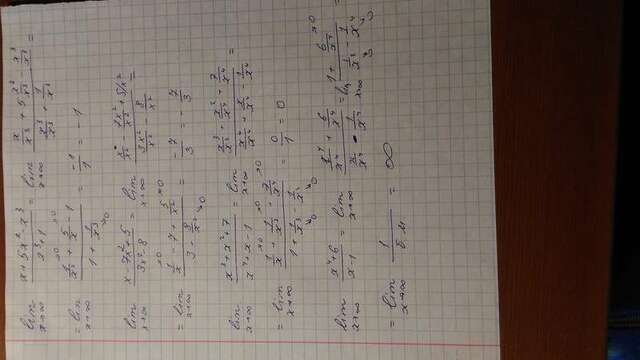 lim x→∞ (x + 5x² - x³)/(x³ + 1) = lim x→∞ (x/x³ + 5 x²/x³ - x³/x³)/(x³/x³ + 1/x³) =
= lim x→∞ (1/x² + 5/x - 1)/(1 + 1/x³) = -1/1 = -1
lim x→∞ (x - 7x² + 5)/(3x² 8) = lim x→∞ (x/x² - 7x²/x² + 5/x²)/(3x²/x² 8/x²) =
= lim x→∞ (1/x - 7 + 5/x²)/(3 + 8/x²) = -7/3 = -7/3
lim x→∞ (x³ + x² + 7)/(x⁴ + x - 1) = lim x→∞ (x³/x⁴ + x²/x⁴ + 7/x⁴)/(x⁴/x⁴ + x/x⁴ - 1/x⁴) =
= lim x→∞ (1/x + 1/x² + 7/x⁴)/(1 + 1/x³ - 1/x⁴) = 0/1 = 0
lim x→∞ (x⁴ + 6)/(x - 1) = lim x→∞ (x⁴/x⁴ + 6/x⁴)/(x/x⁴ - 1/x⁴) = lim x→∞ (1 + 6/x⁴)/(1/x³ - 1/x⁴)
= lim x→∞ 1/б.м = ∞